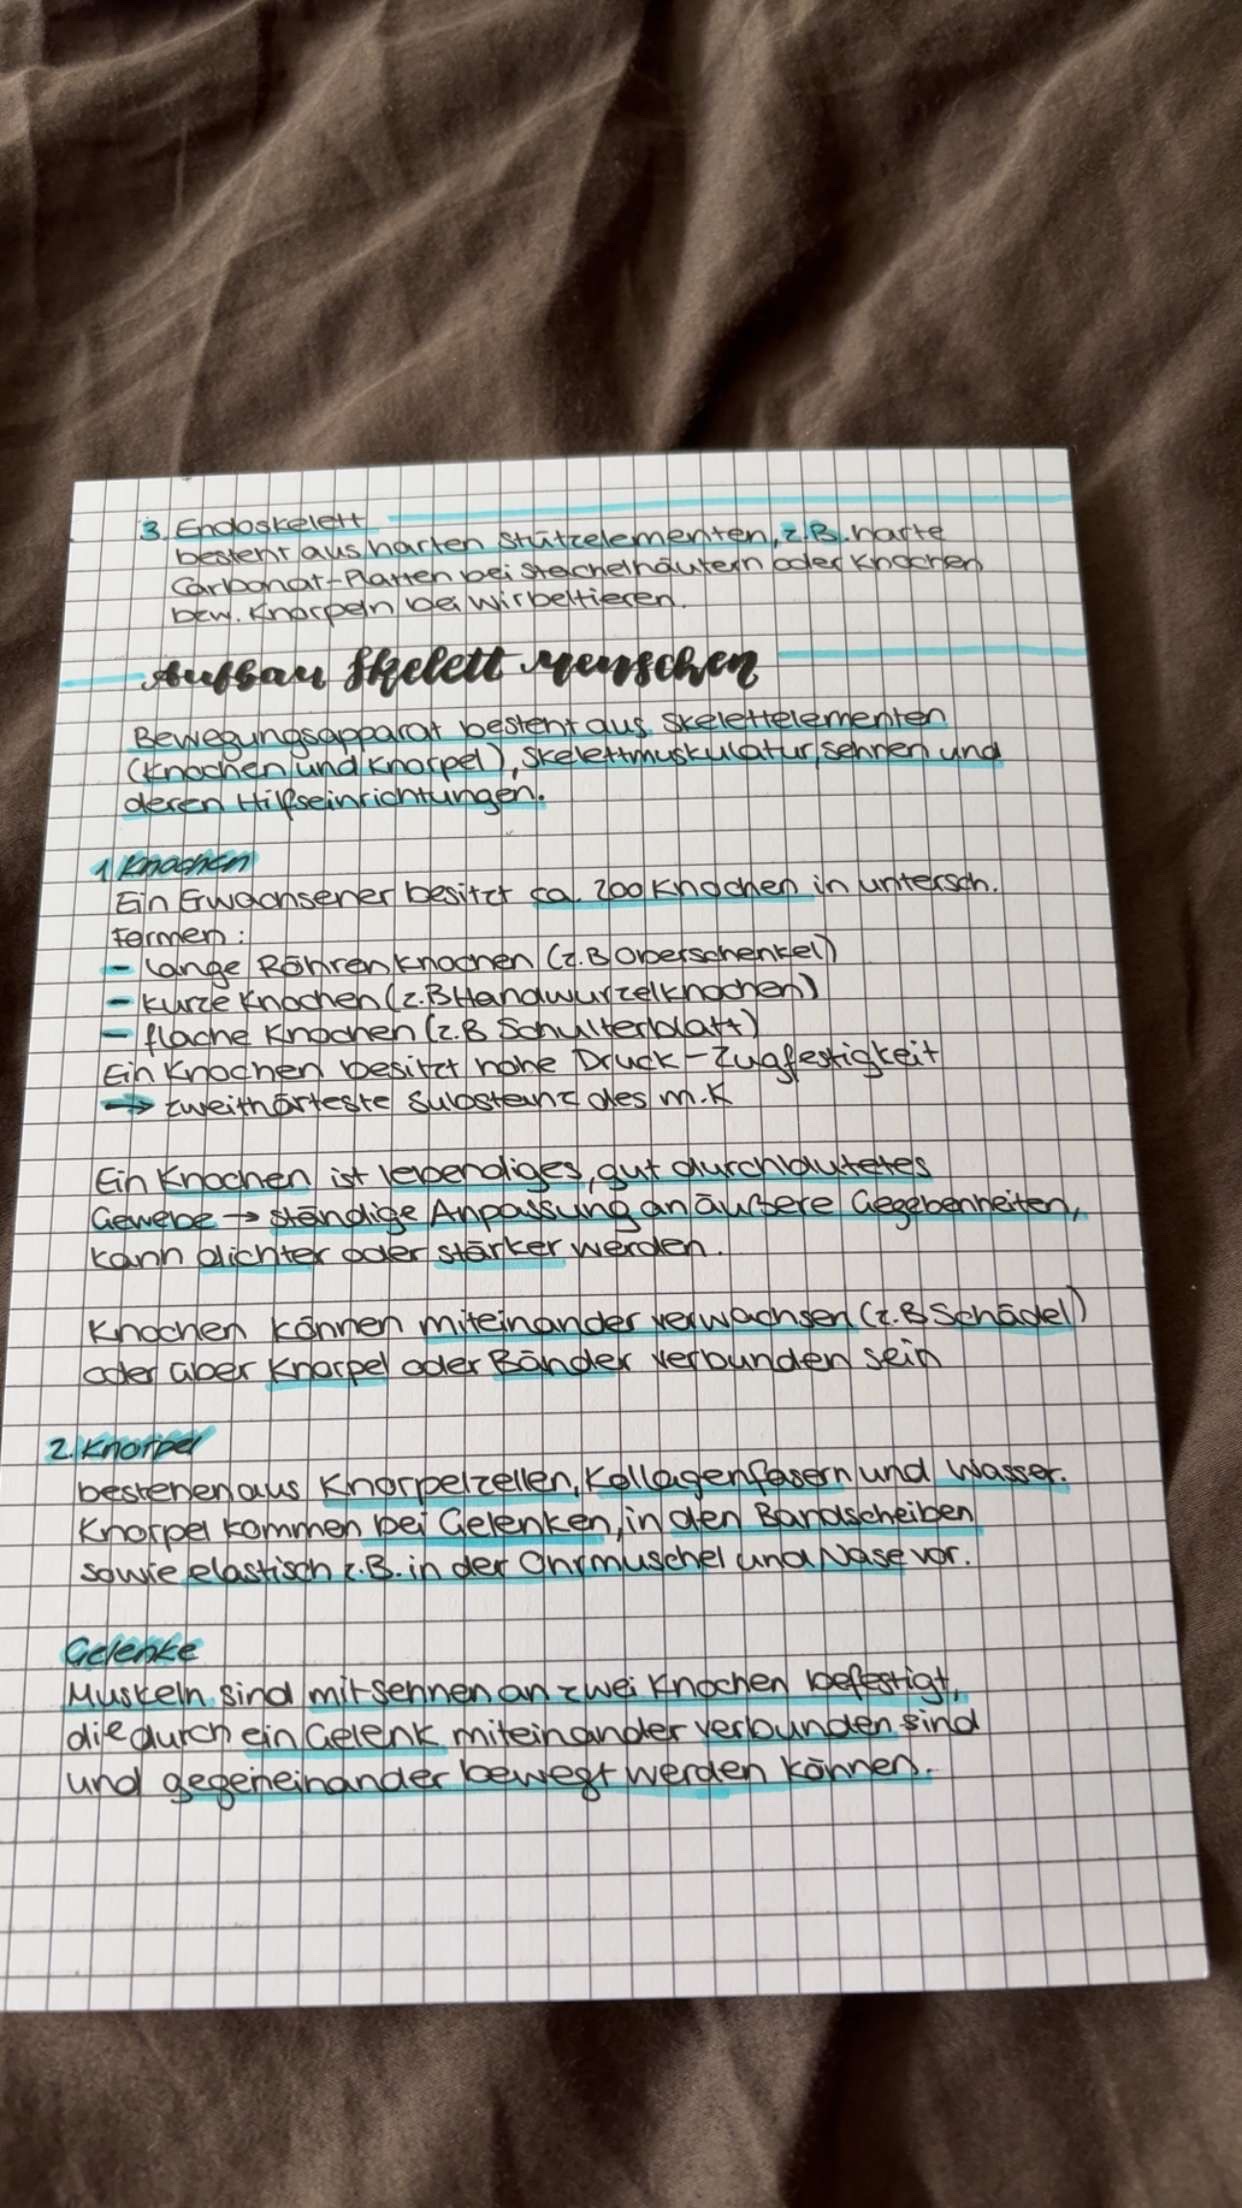 3. Endoskelett
besteht aus harten Stützelementen, z.B. harte
Carbonat-Platten bei Stachelhäutern oder Knochen
bzw. Knorpeln bei Wirbeltieren.
Aufbau Skelett Menschen
Bewegungsapparat besteht aus Skelettelementen
(Knochen und Knorpel), Skelettmuskulatur, Sehnen und
deren Hilfseinrichtungen.
1 Knochen
Ein Erwachsener besitzt ca. 200 Knochen in untersch.
Formen:
- lange Röhrenknochen (z.B Oberschenkel)
- kurze Knochen (z.B Handwurzelknochen)
- flache Knochen (z.B Schulterblatt)
Ein Knochen besitzt hohe Druck-Zugfestigkeit
→ zweithärteste Substanz des m.K
Ein Knochen ist lebendiges, gut durchblutetes
Gewebe → ständige Anpassung an äußere Gegebenheiten,
kann dichter oder stärker werden.
Knochen können miteinander verwachsen (z.B Schädel)
oder aber Knorpel oder Bänder verbunden sein
2. Knorpel
bestehen aus Knorpelzellen, Kollagenfasern und Wasser.
Knorpel kommen bei Gelenken, in den Bandscheiben
sowie elastisch z.B. in der Ohrmuschel und Nase vor.
Gelenke
Muskeln sind mit Sehnen an zwei Knochen befestigt,
die durch ein Gelenk miteinander verbunden sind
und gegeneinander bewegt werden können.